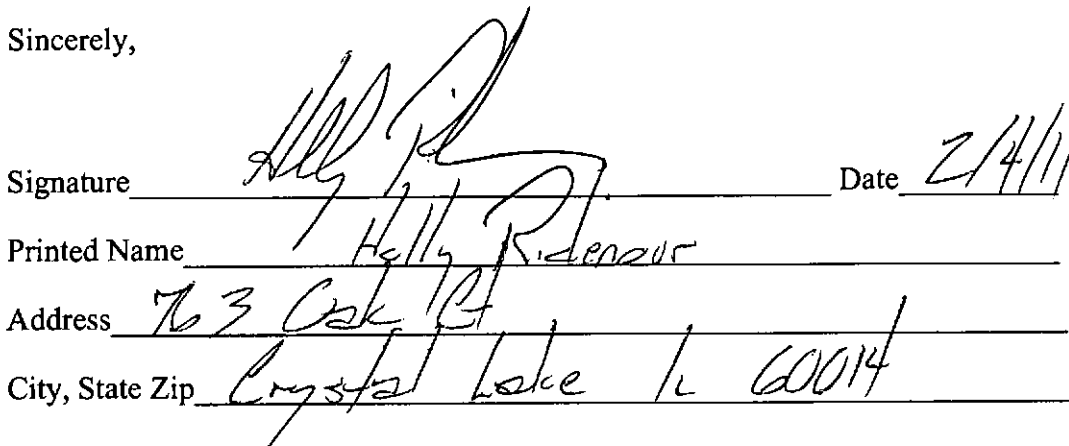 Sincerely,
Signature Holly Ridenour Date 2/4/11
Printed Name Holly Ridenour
Address 763 Oak Ct
City, State Zip Crystal Lake IL 60014